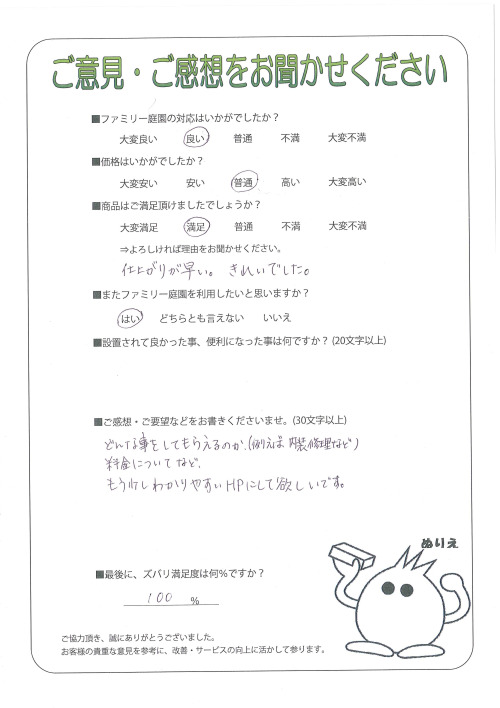 ご意見・ご感想をお聞かせください
■ファミリー庭園の対応はいかがでしたか？
大変良い 良い 普通 不満 大変不満
■価格はいかがでしたか？
大変安い 安い 普通 高い 大変高い
■商品はご満足頂けましたでしょうか？
大変満足 満足 普通 不満 大変不満
⇒よろしければ理由をお聞かせください。
仕上がりが早い。きれいでした。
■またファミリー庭園を利用したいと思いますか？
はい どちらとも言えない いいえ
■設置されて良かった事、便利になった事は何ですか？(20文字以上)
■ご感想・ご要望などをお書きくださいませ。(30文字以上)
どんな事をしてもらえるのか、(例えば 内装修理など)
料金についてなど、
もう少しわかりやすいHPにして欲しいです。
ぬりえ
■最後に、ズバリ満足度は何％ですか？
100 %
ご協力頂き、誠にありがとうございました。
お客様の貴重な意見を参考に、改善・サービスの向上に活かして参ります。